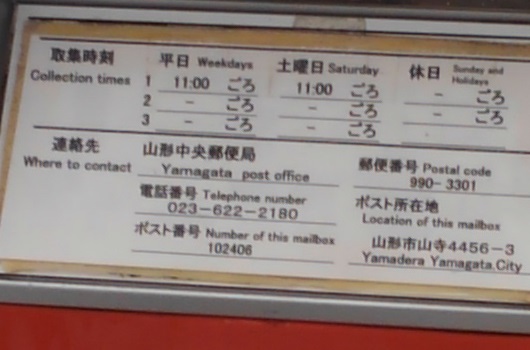 取集時刻 平日 Weekdays 土曜日 Saturday 休日 Sunday and Holidays
Collection times 1 11:00 ごろ 11:00 ごろ - ごろ
2 - ごろ - ごろ - ごろ
3 - ごろ - ごろ
連絡先 山形中央郵便局
Where to contact Yamagata post office
電話番号 Telephone number
023-622-2180
ポスト番号 Number of this mailbox
102406
郵便番号 Postal code
990-3301
ポスト所在地
Location of this mailbox
山形市山寺4456-3
Yamadera Yamagata.City